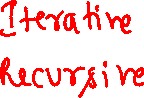 Iterative
Recursive